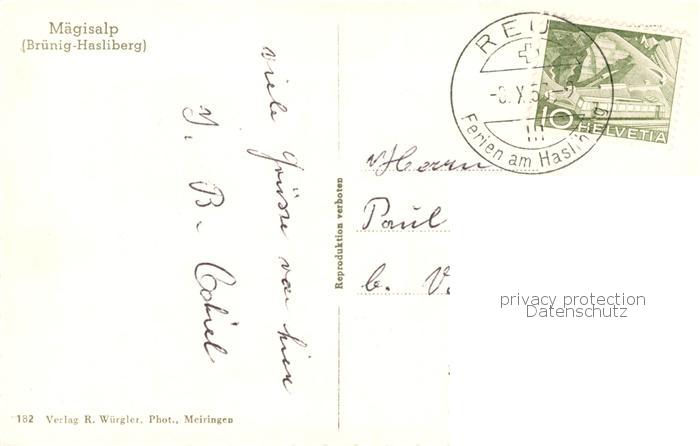 Mägisalp
(Brünig-Hasliberg)
viele Grüsse von hier
REU
-8.X.5
Ferien am Hasliberg
10 HELVETIA
Reproduktion verboten
Herrn
Paul
b. V.
privacy protection
Datenschutz
182 Verlag R. Würgler, Phot., Meiringen